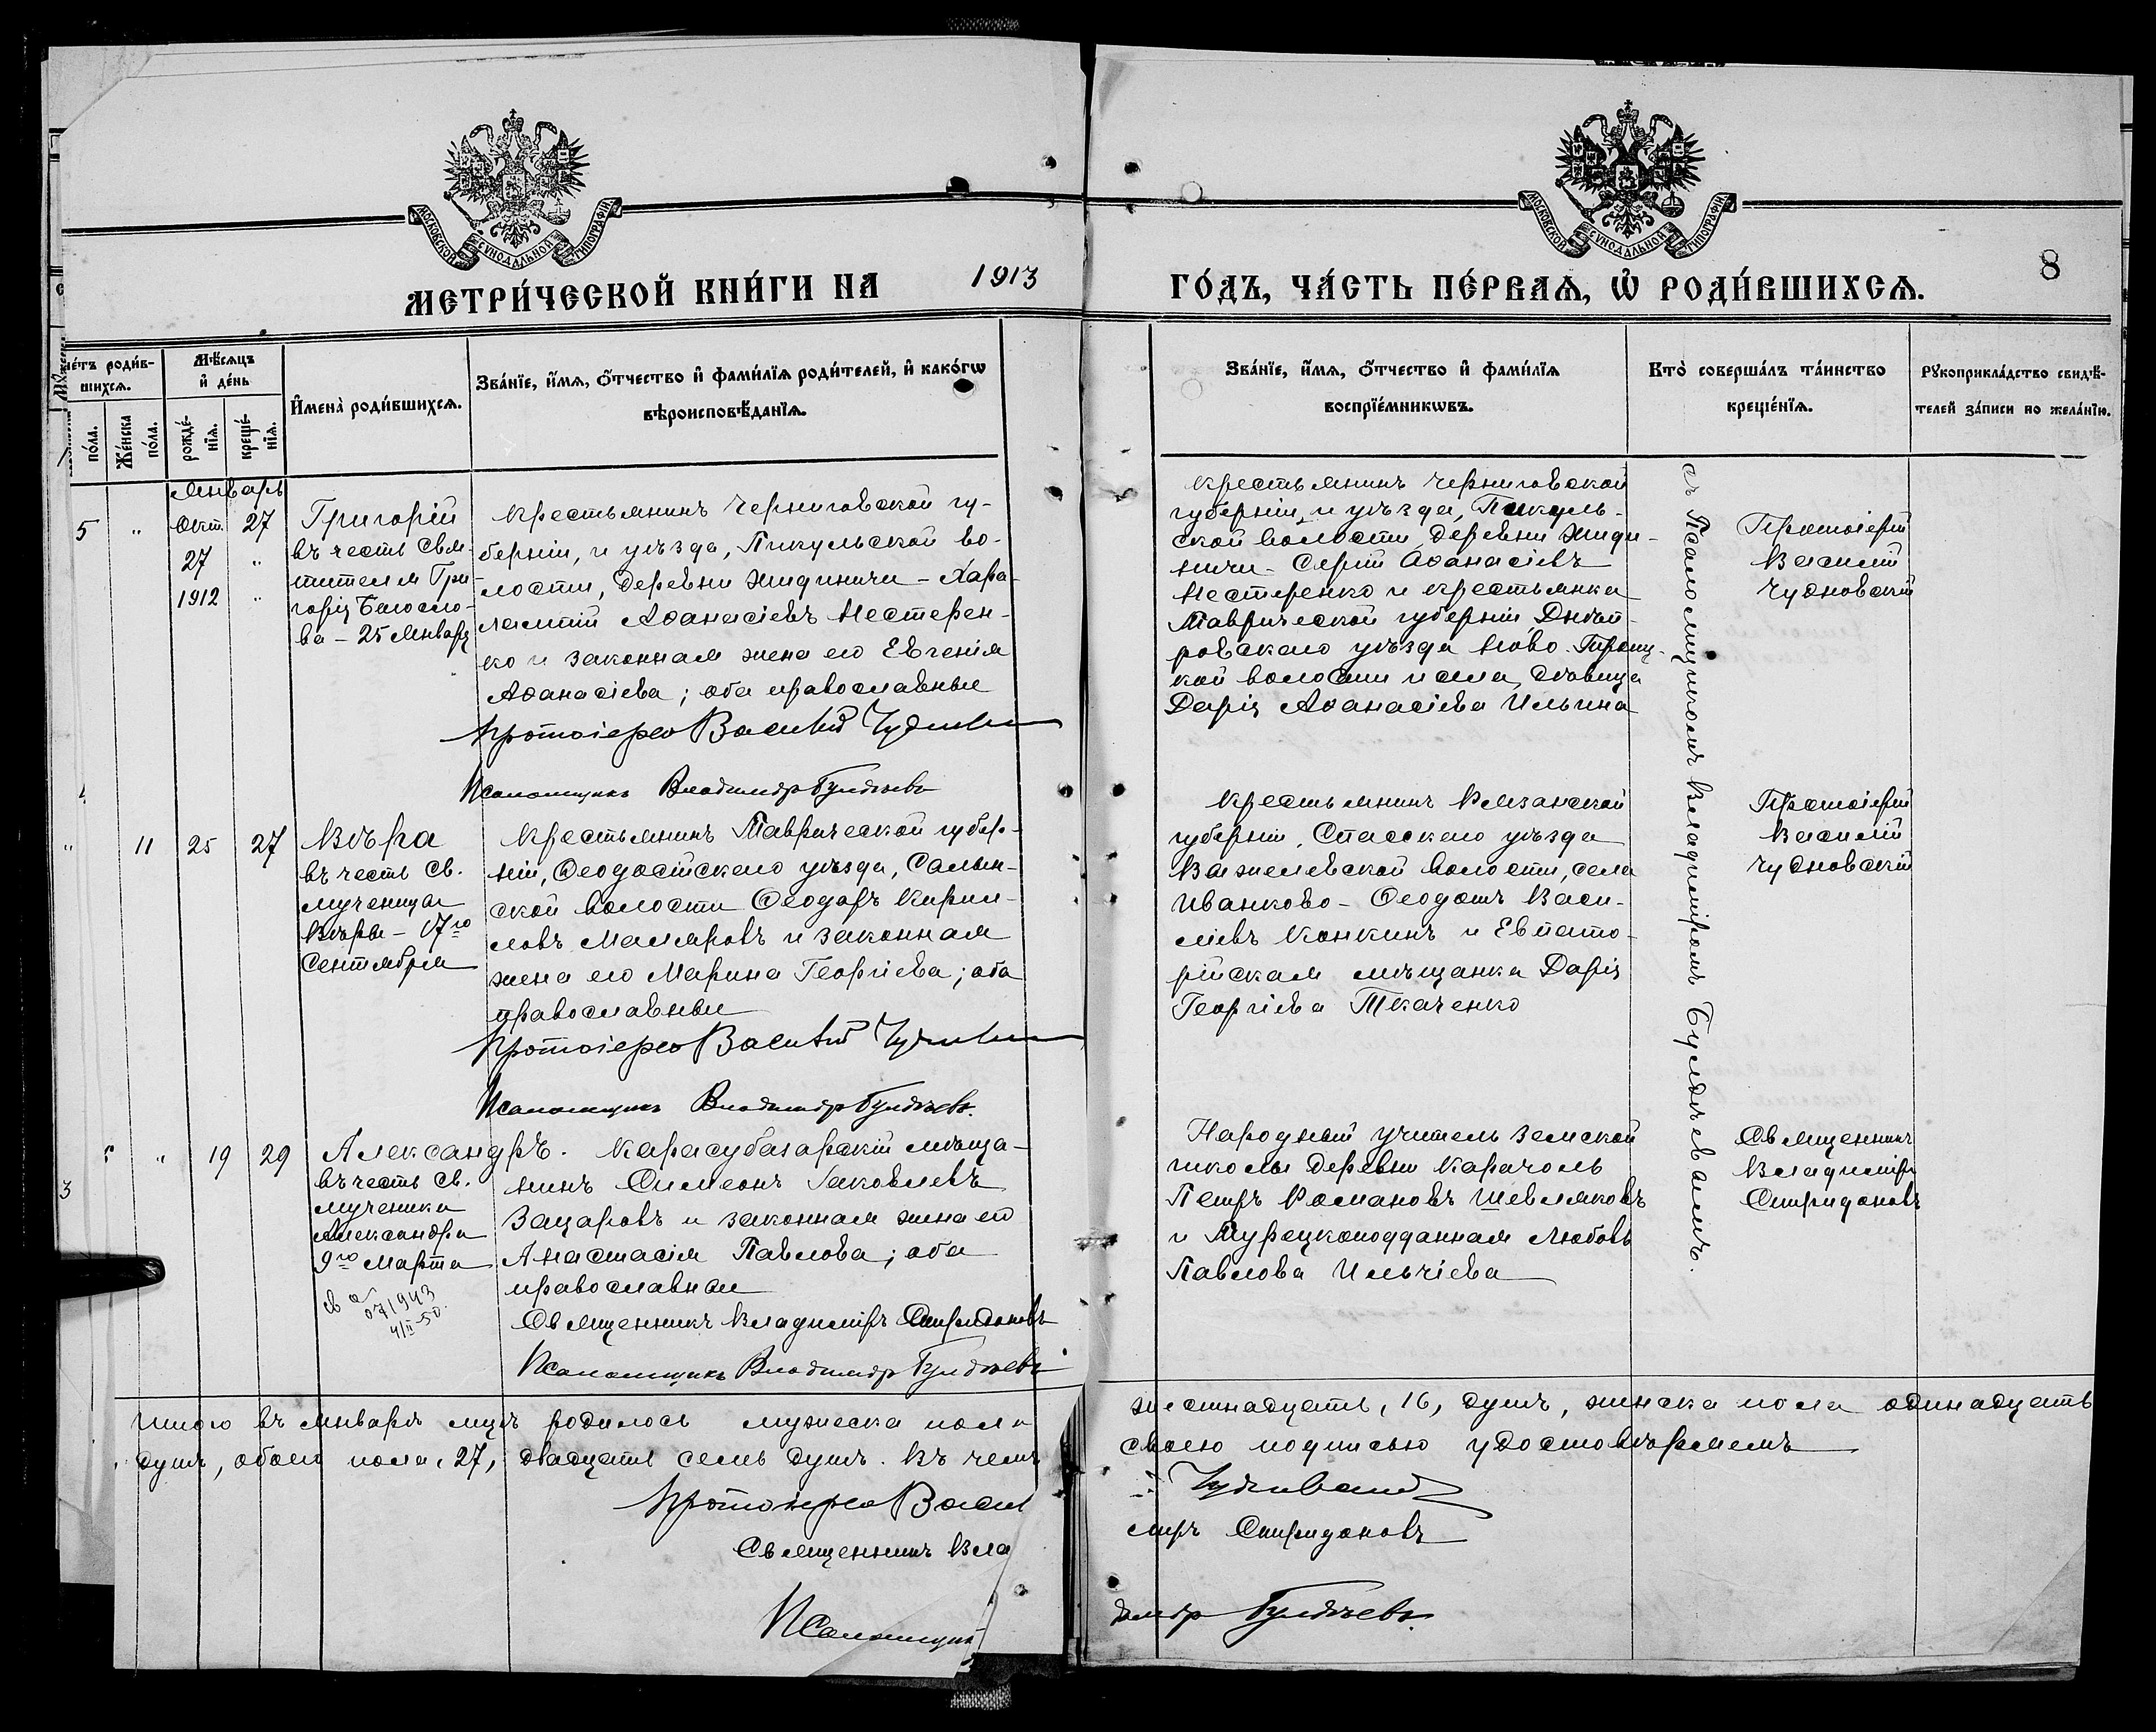 МОСКОВСКОЙ СѴНОДАЛЬНОЙ ТИПОГРАФІИ
МОСКОВСКОЙ СѴНОДАЛЬНОЙ ТИПОГРАФІИ
МЕТРИ́ЧЕСКОЙ КНИ́ГИ НА 1913 ГО́ДЪ, ЧА́СТЬ ПЕ́РВАЯ, Ѡ҆ РОДИ́ВШИХСЯ.
8
Мѣ́сяцъ
и҆ де́нь
шихся.
по́ла.
Же́нска по́ла.
рожде́нїя.
креще́нїя.
И҆мена̀ роди́вшихся.
Зва́нїе, и҆́мя, ѻ҆́тчество и҆ фами́лїя роди́телей, и҆ како́гѡ
вѣроисповѣ́данїя.
Зва́нїе, и҆́мя, ѻ҆́тчество и҆ фами́лїя
воспрїе́мникѡвъ.
Кто̀ соверша́лъ та́инство
креще́нїя.
Рꙋкоприкла́дство свидѣ́-
телей за́писи по жела́нїю.
Январь
5 " Окт. 27
27 "
1912 "
Григорій
въ честь Свя-
тителя Гри-
горія Богосло-
ва – 25 Января
Крестьянинъ Черниговской гу-
берніи, и уѣзда, Пикульской во-
лости, деревни Жидиничи – Хара-
лампій Аѳанасіевъ Нестерен-
ко и законная жена его Евгенія
Аѳанасіева; оба православные
Протоіерей Василій Чудновскій
Псаломщикъ Владиміръ Булдѣевъ
Крестьянинъ Черниговской
губерніи, и уѣзда, Пикуль-
ской волости, деревни Жиди-
ничи – Сергій Аѳанасіевъ
Нестеренко и крестьянка
Таврической губерніи, Днѣп-
ровскаго уѣзда Ново-Троиц-
кой волости и села, дѣвица
Дарія Аѳанасіева Ильина
Протоіерей
Василій
Чудновскій
съ Псаломщикомъ Владиміромъ Булдѣевымъ.
" 11 25 27
Вѣра
въ честь Св.
мученицы
Вѣры – 17го
Сентября
Крестьянинъ Таврической губер-
ніи, Ѳеодосійскаго уѣзда, Салын-
ской волости Ѳеодоръ Кирил-
ловъ Маляровъ и законная
жена его Марина Георгіева; оба
православные
Протоіерей Василій Чудновскій
Псаломщикъ Владиміръ Булдѣевъ.
Крестьянинъ Рязанской
губерніи, Спасскаго уѣзда
Важелевской волости, села
Иванково – Ѳеодотъ Васи-
ліевъ Конкинъ и Евпато-
рійская мѣщанка Дарія
Георгіева Ткаченко
Протоіерей
Василій
Чудновскій
" 19 29
Александръ.
въ честь Св.
мученика
Александра
9го Марта
071943
4/II-50.
Карасубазарскій мѣща-
нинъ Симеонъ Іаковлевъ
Зацаровъ и законная жена его
Анастасія Павлова; оба
православныя
Священникъ Владиміръ Спиридоновъ
Псаломщикъ Владиміръ Булдѣевъ
Народный учитель земской
школы деревни Карачоль
Петръ Романовъ Шевляковъ
и Турецкоподданная Любовь
Павлова Ильчіева
Священникъ
Владиміръ
Спиридоновъ
3
Итого въ Январѣ мцѣ родилось мужеска пола шестнадцать, 16, душъ, женска пола одинадцать
душъ, обоего пола, 27, двадцать семь душъ. Въ чемъ своею подписью удостовѣряемъ
Протоіерей Васи Чудновскій
Священникъ Вла міръ Спиридоновъ
Псаломщик диміръ Булдѣевъ.